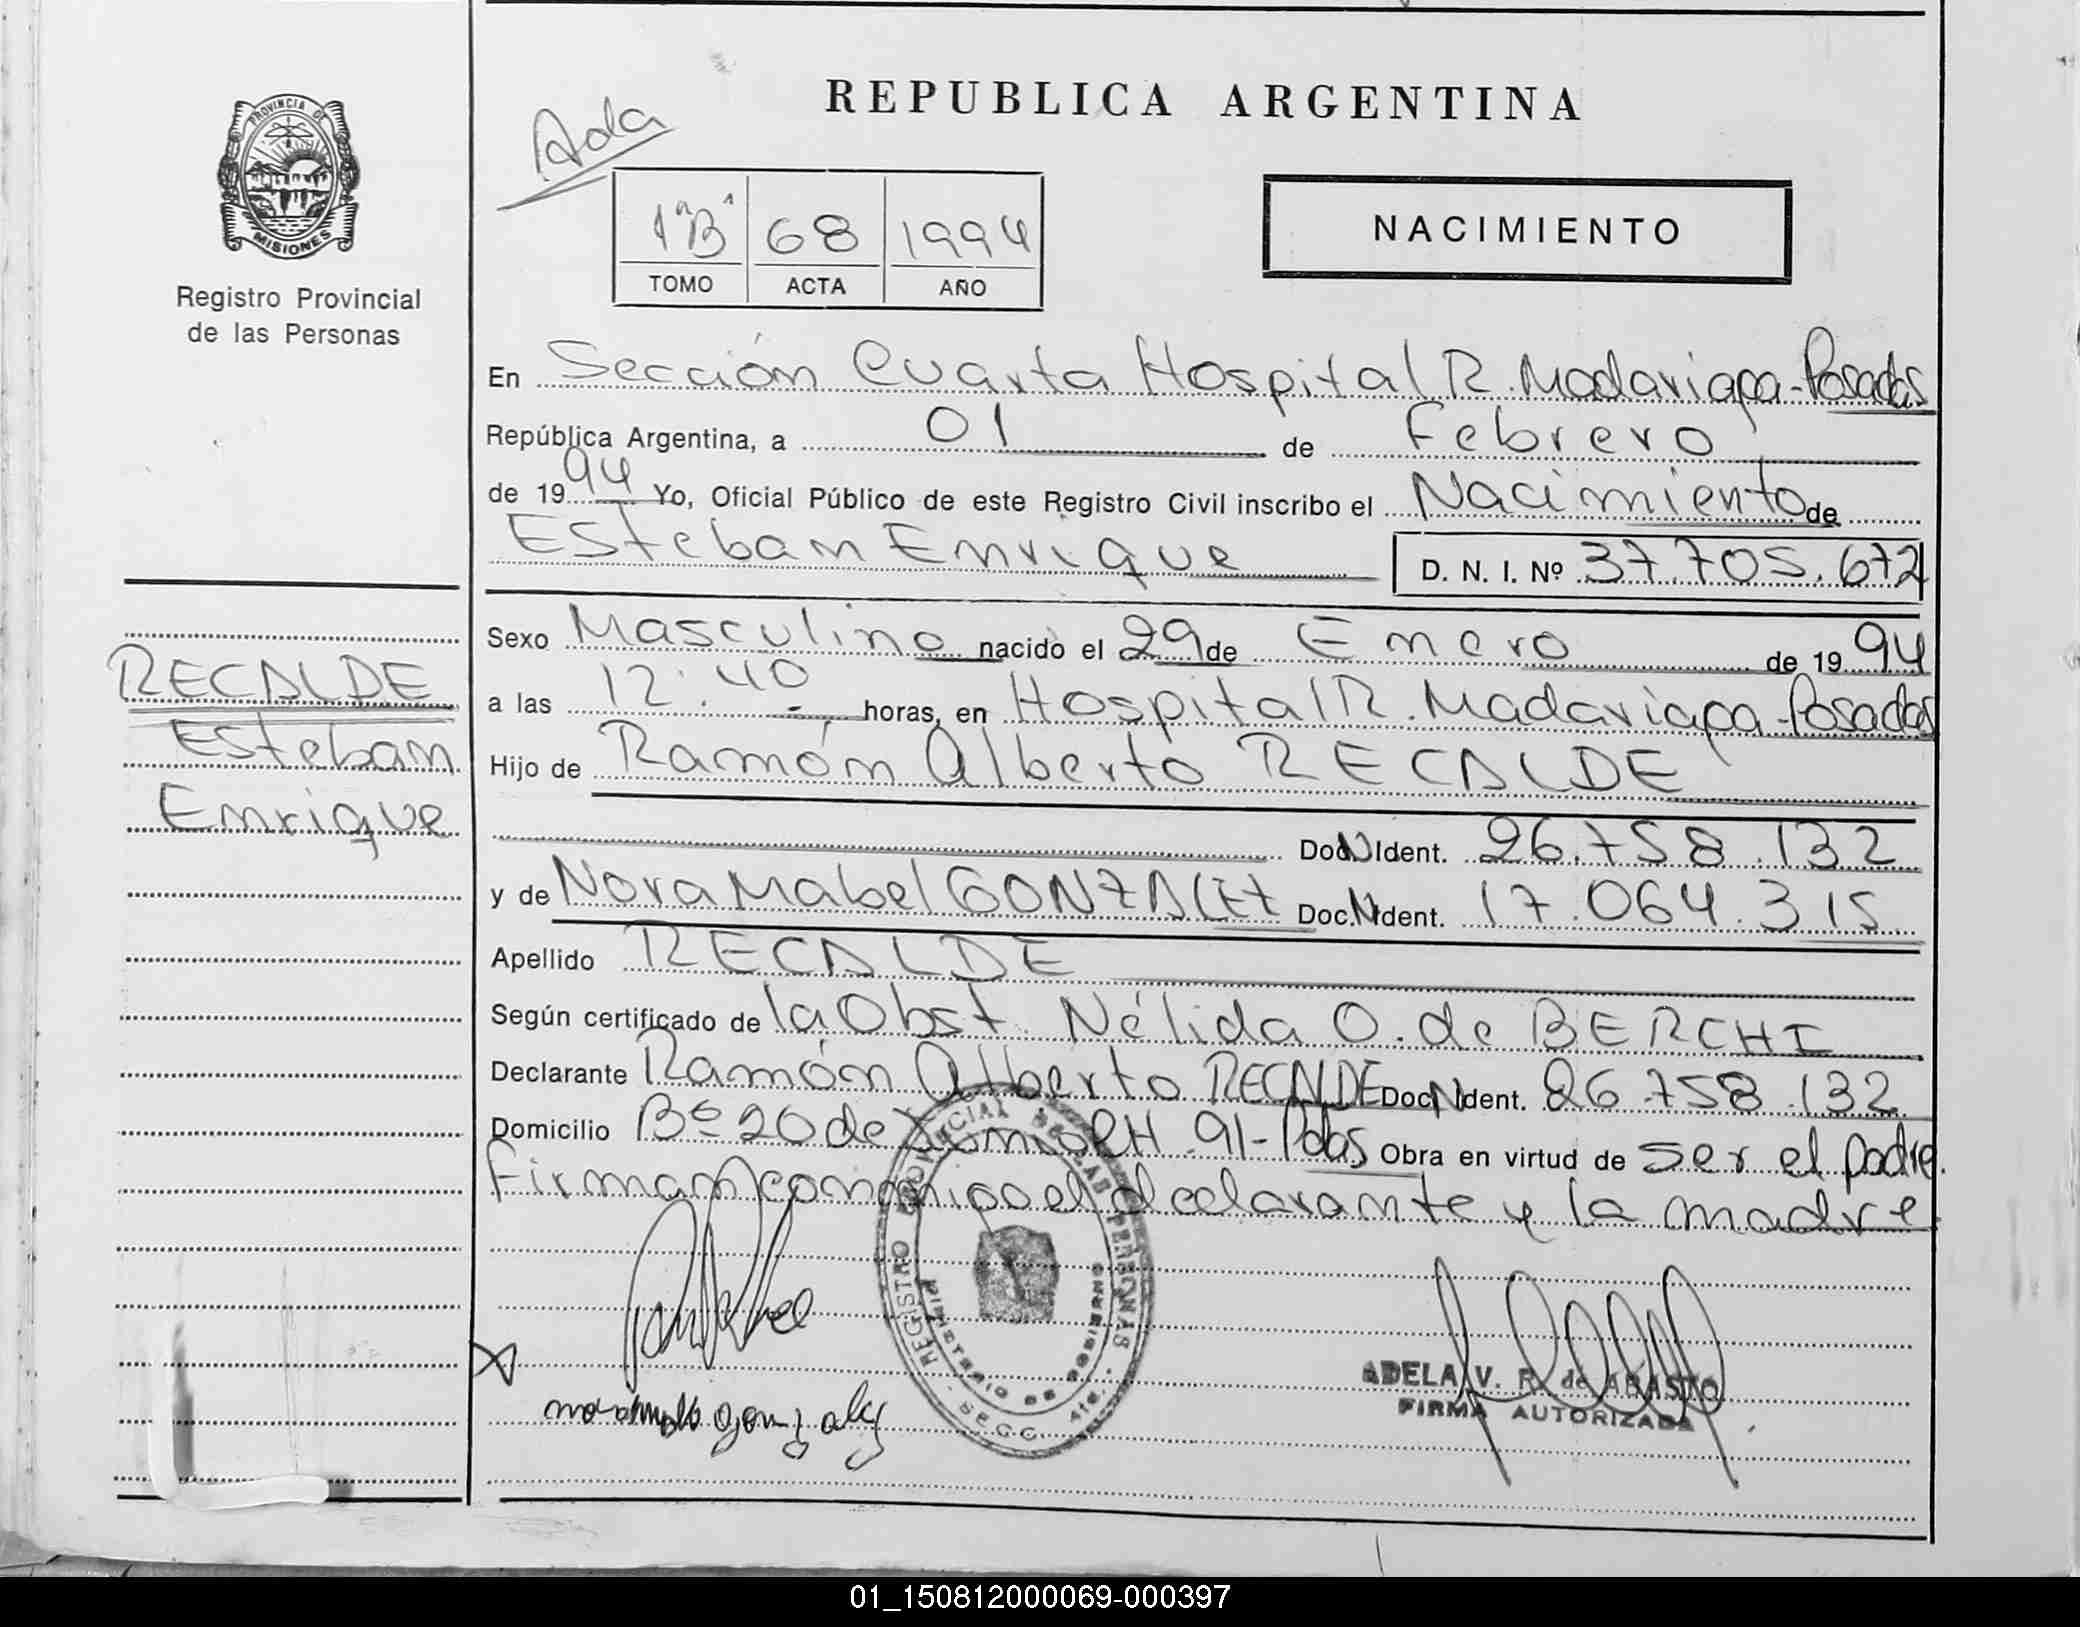 REPUBLICA ARGENTINA
Ada
PROVINCIA DE
MISIONES
Registro Provincial
de las Personas
1ª"B" 68 1994
TOMO ACTA AÑO
NACIMIENTO
En Sección Cuarta Hospital R. Madariaga-Posadas
República Argentina, a 01 de Febrero
de 1994 Yo, Oficial Público de este Registro Civil inscribo el Nacimiento de
Esteban Enrique D. N. I. Nº 37.705.672
Sexo Masculino nacido el 29 de Enero de 1994
a las 12:40 horas, en Hospital R. Madariaga-Posadas
Hijo de Ramón Alberto RECALDE
Doc.N Ident. 26.758.132
y de Nora Mabel GONZALEZ Doc.N Ident. 17.064.315
Apellido RECALDE
Según certificado de la Obst. Nélida O. de BERCHI
Declarante Ramón Alberto RECALDE Doc.N Ident. 26.758.132
Domicilio Bº 20 de Junio CH. 91-Pdas Obra en virtud de ser el padre.
Firman conmigo el declarante y la madre
RECALDE
Esteban
Enrique
REGISTRO PROVINCIAL DE LAS PERSONAS
MINISTERIO DE GOBIERNO
SECC. 4ta.
gonzalez
ADELA V. R. de ABASTO
FIRMA AUTORIZADA
01_150812000069-000397